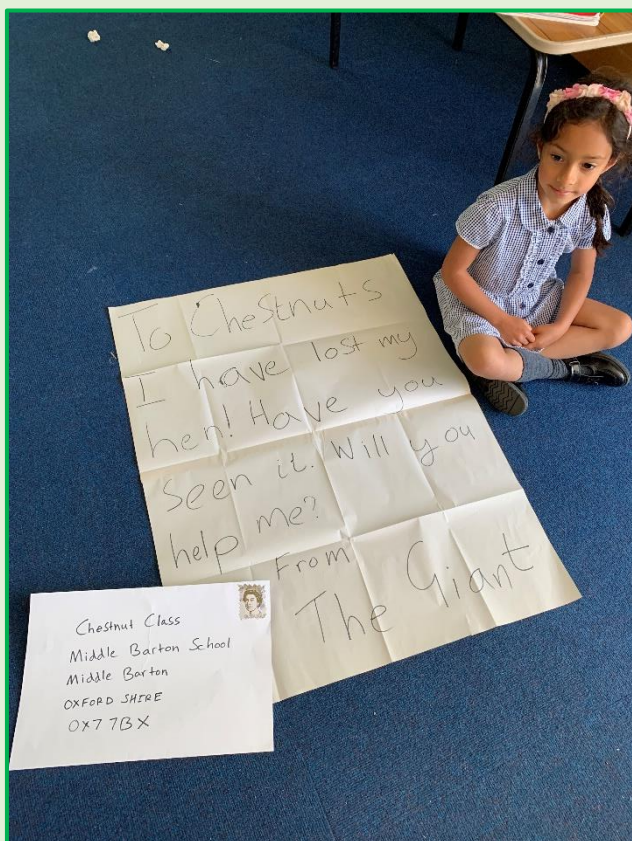 To Chestnuts
I have lost my
hen! Have you
seen it. Will you
help me?
From
The Giant
Chestnut Class
Middle Barton School
Middle Barton
OXFORD SHIRE
OX7 7BX